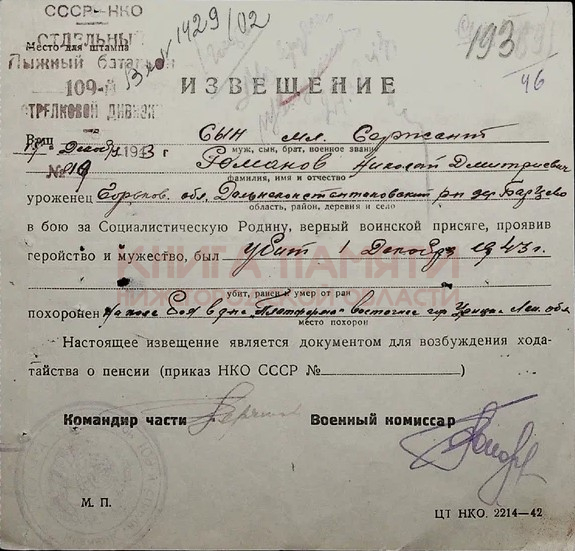 СССР—НКО
ОТДЕЛЬНЫЙ
Место для штампа
Лыжный батальон
109-й
СТРЕЛКОВОЙ ДИВИЗИИ
1429/02
193
46
ИЗВЕЩЕНИЕ
Ваш сын мл. сержант
муж, сын, брат, военное звание
Декабря 1943 г.
№ 19
Романов Николай Дмитриевич
фамилия, имя и отчество
уроженец Горьков. обл. Дальнеконстантиновский р-н дер. Барцево
область, район, деревня и село
в бою за Социалистическую Родину, верный воинской присяге, проявив
геройство и мужество, был убит 1 декабря 1943 г.
КНИГА ПАМЯТИ
НИЖЕГОРОДСКОЙ ОБЛАСТИ
убит, ранен и умер от ран
похоронен "Платформа" восточнее гор. Урицк Лен. обл.
место похорон
Настоящее извещение является документом для возбуждения хода-
тайства о пенсии (приказ НКО СССР №)
Командир части
Военный комиссар
М. П.
ЦТ НКО. 2214—42